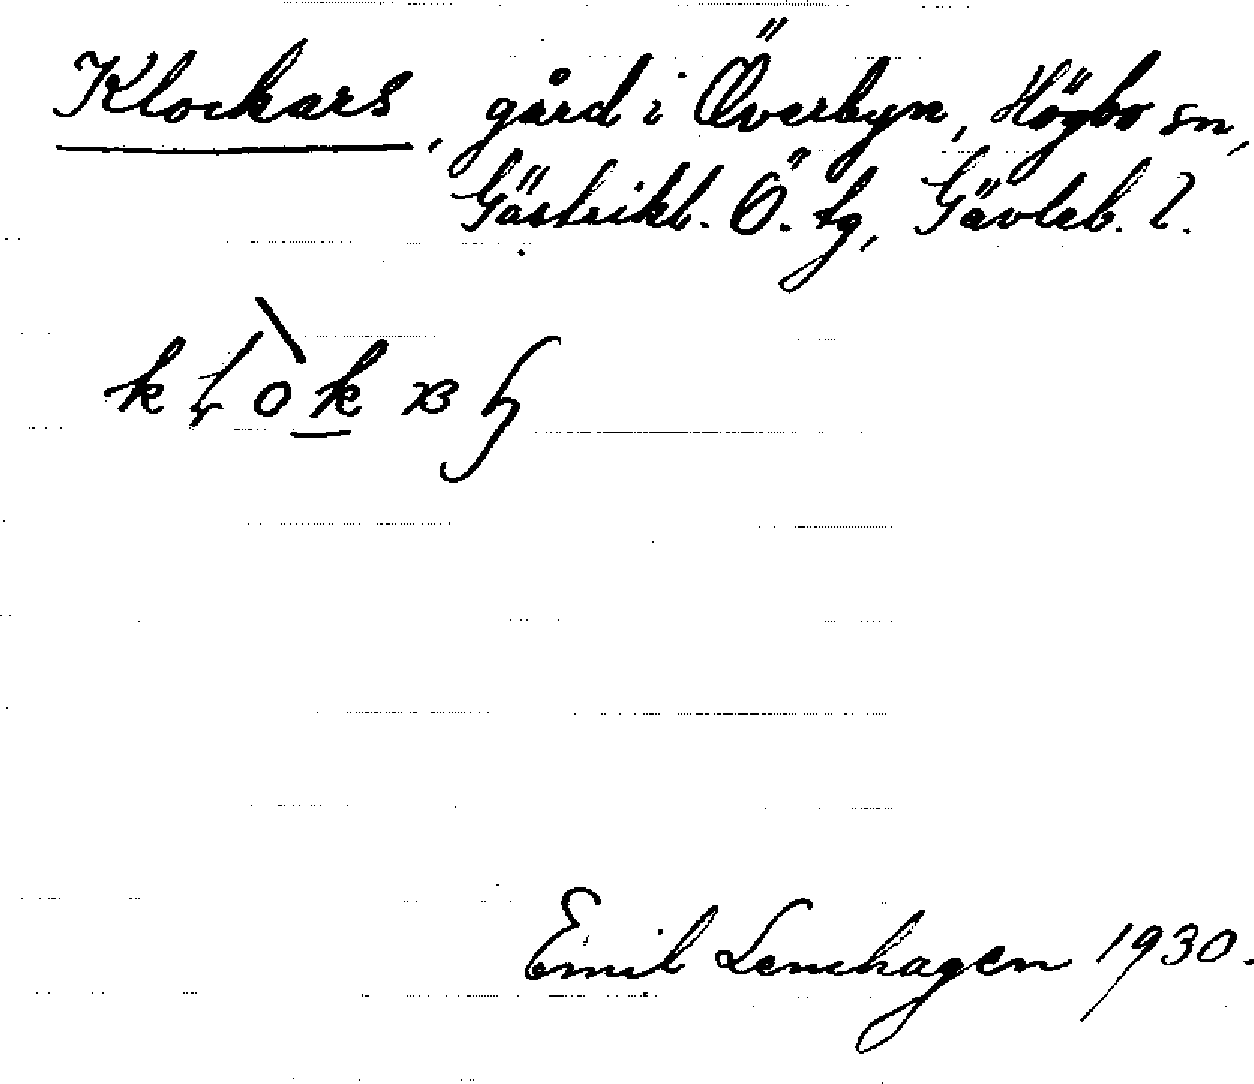 Klockars, gård i Överbyn, Högbo sn,
Gästrikl. Ö. tg, Gävleb. l.
Emil Lenehagen 1930.